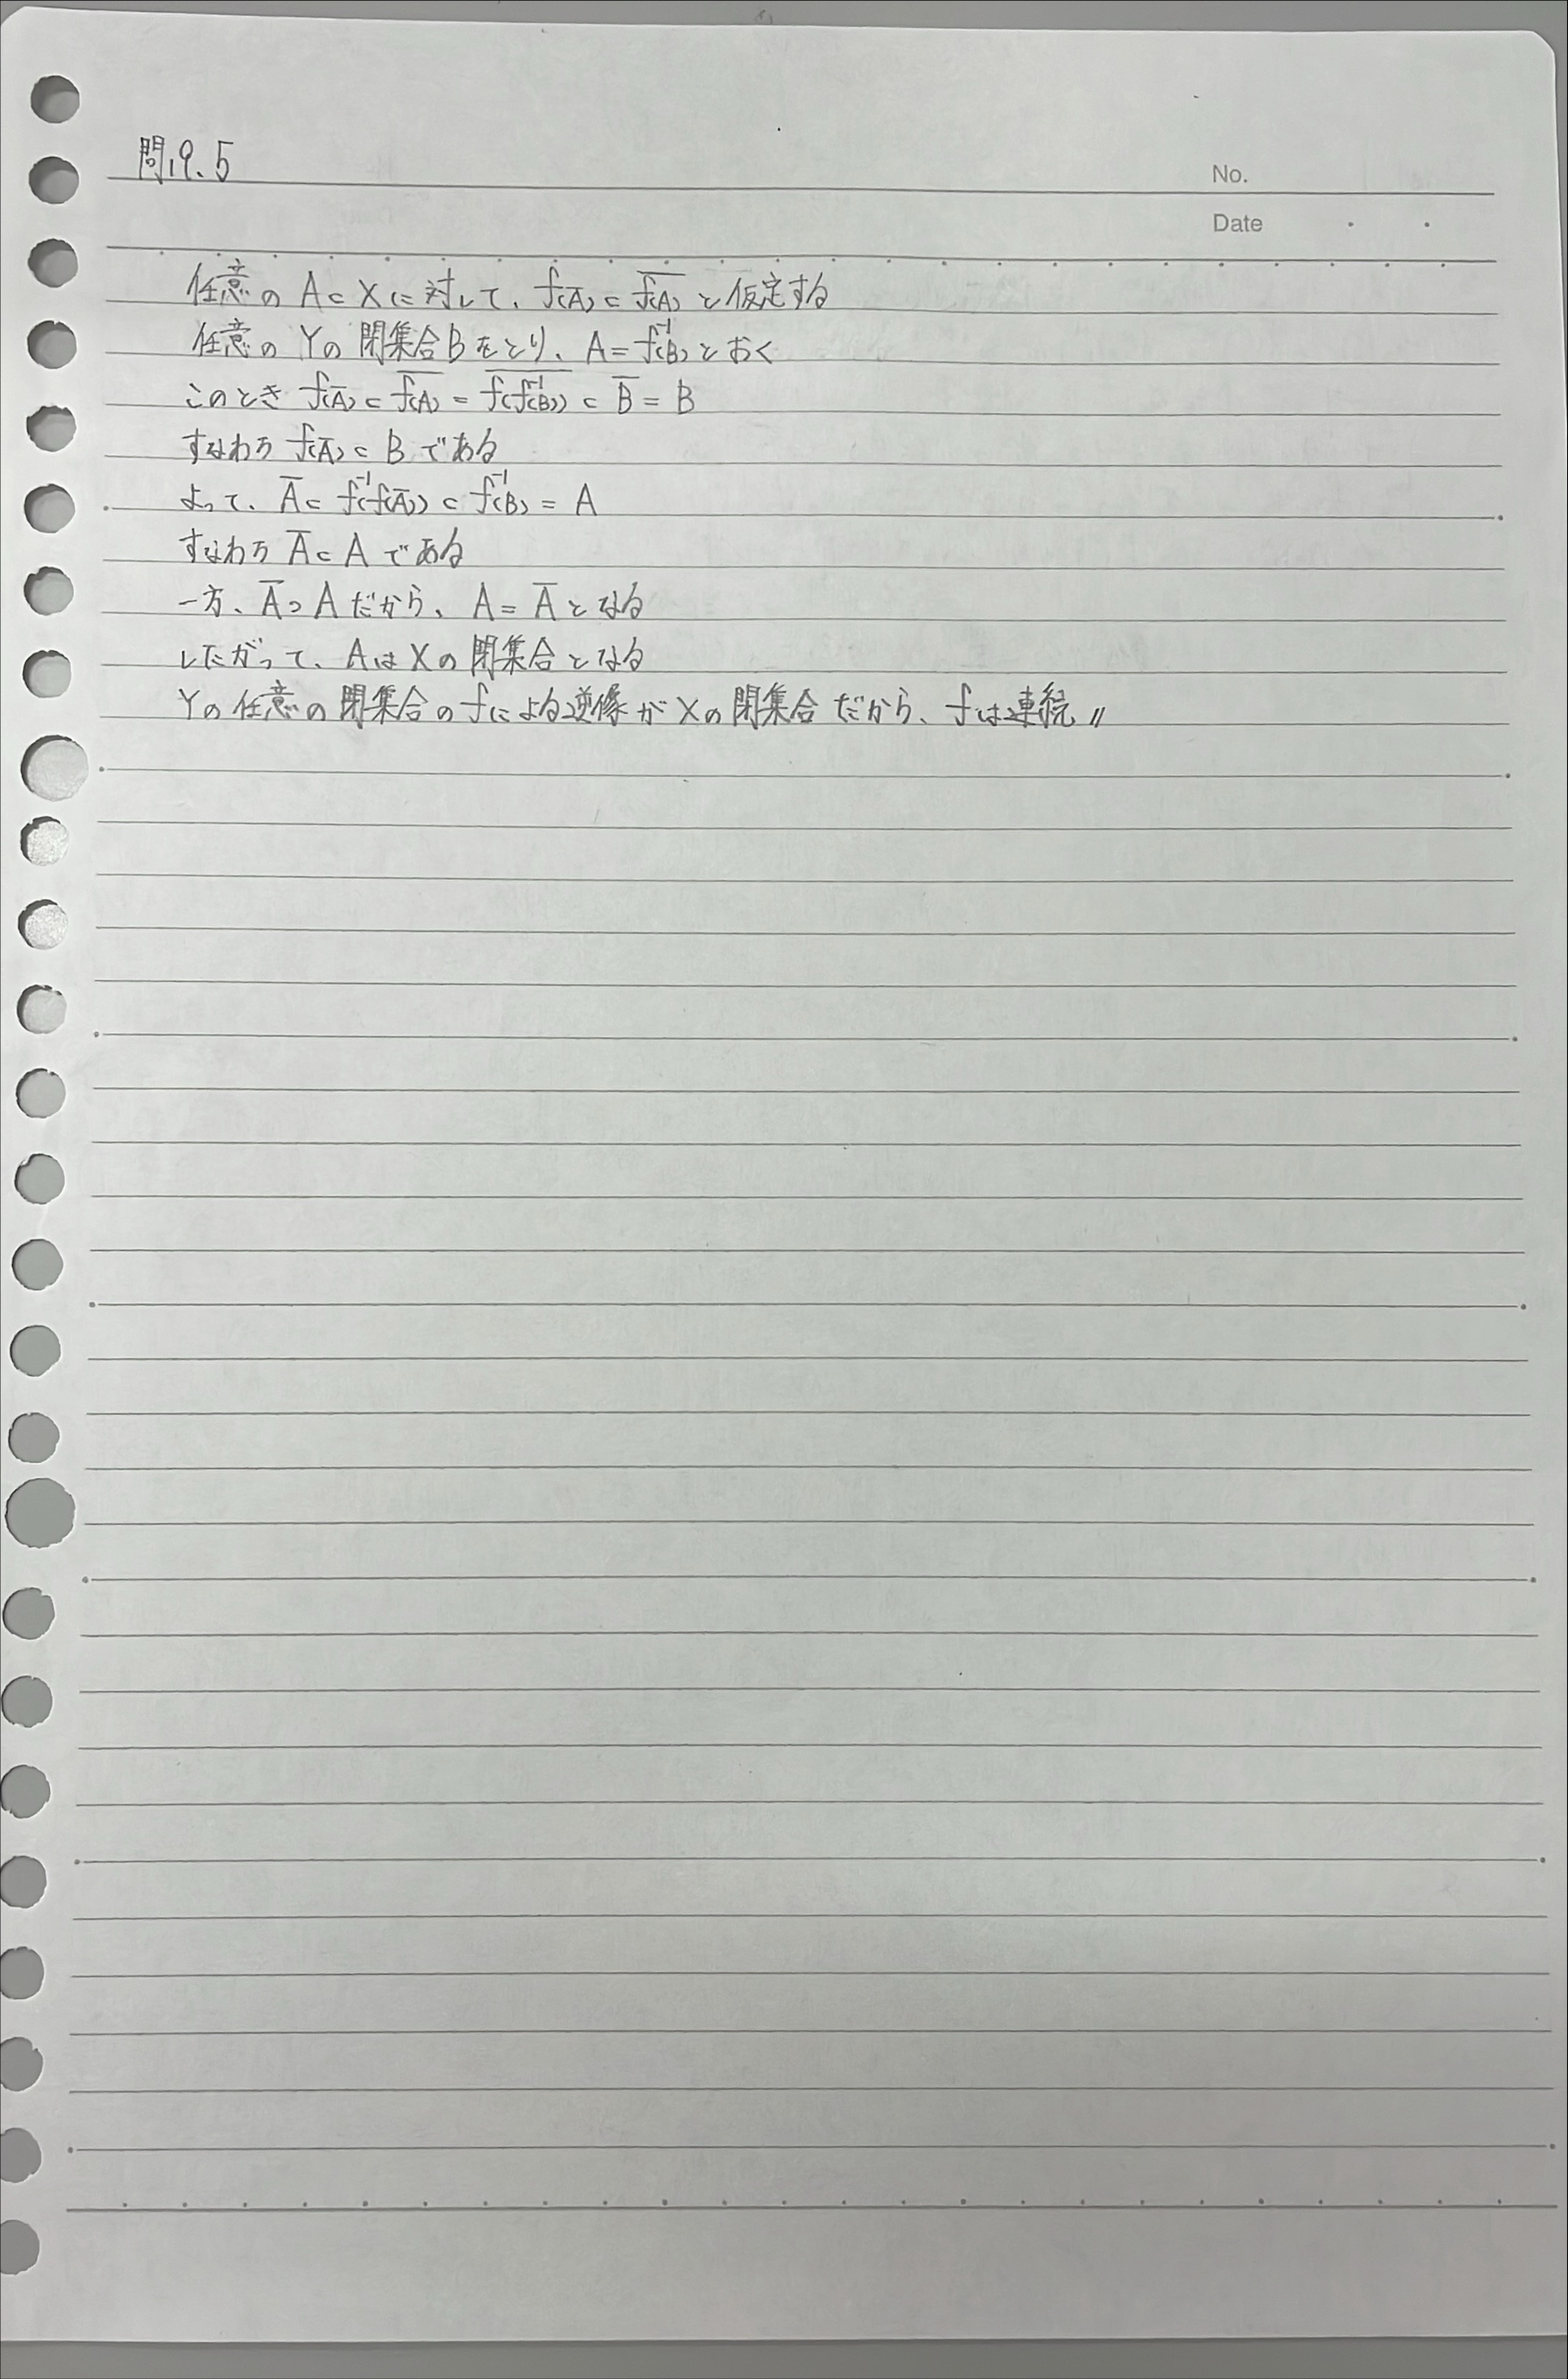 問19.5
No.
Date
任意の A⊂Xに対して、f(A̅)⊂f(A)‾ と仮定する
任意の Yの 閉集合Bをとり、A=f⁻¹(B)とおく
このとき f(A̅)⊂f(A)‾ = f(f⁻¹(B))‾ ⊂ B̅ = B
すなわち f(A̅)⊂B である
よって、A̅⊂f⁻¹(f(A̅))⊂f⁻¹(B)=A
すなわち A̅⊂A である
一方、A̅⊃Aだから、A=A̅となる
したがって、AはXの閉集合となる
Yの任意の閉集合のfによる逆像がXの閉集合だから、fは連続〃